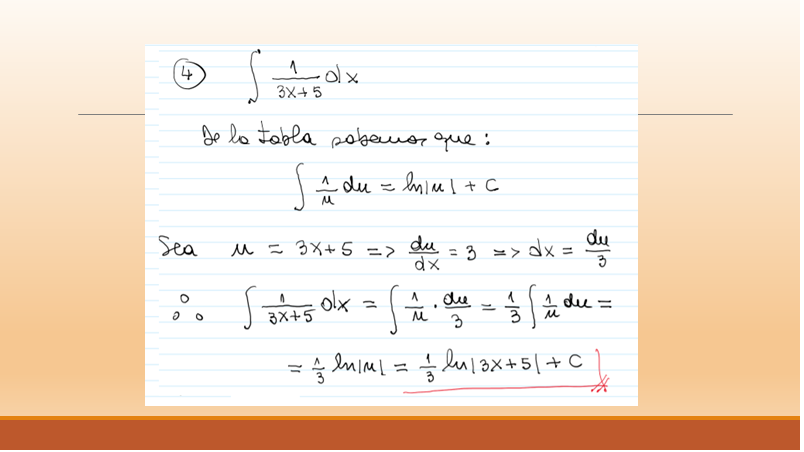 4 ∫ 1/(3x+5) dx
De la tabla sabemos que:
∫ 1/u du = ln|u| + C
Sea u = 3x+5 => du/dx = 3 => dx = du/3
∴ ∫ 1/(3x+5) dx = ∫ 1/u · du/3 = 1/3 ∫ 1/u du =
= 1/3 ln|u| = 1/3 ln|3x+5| + C